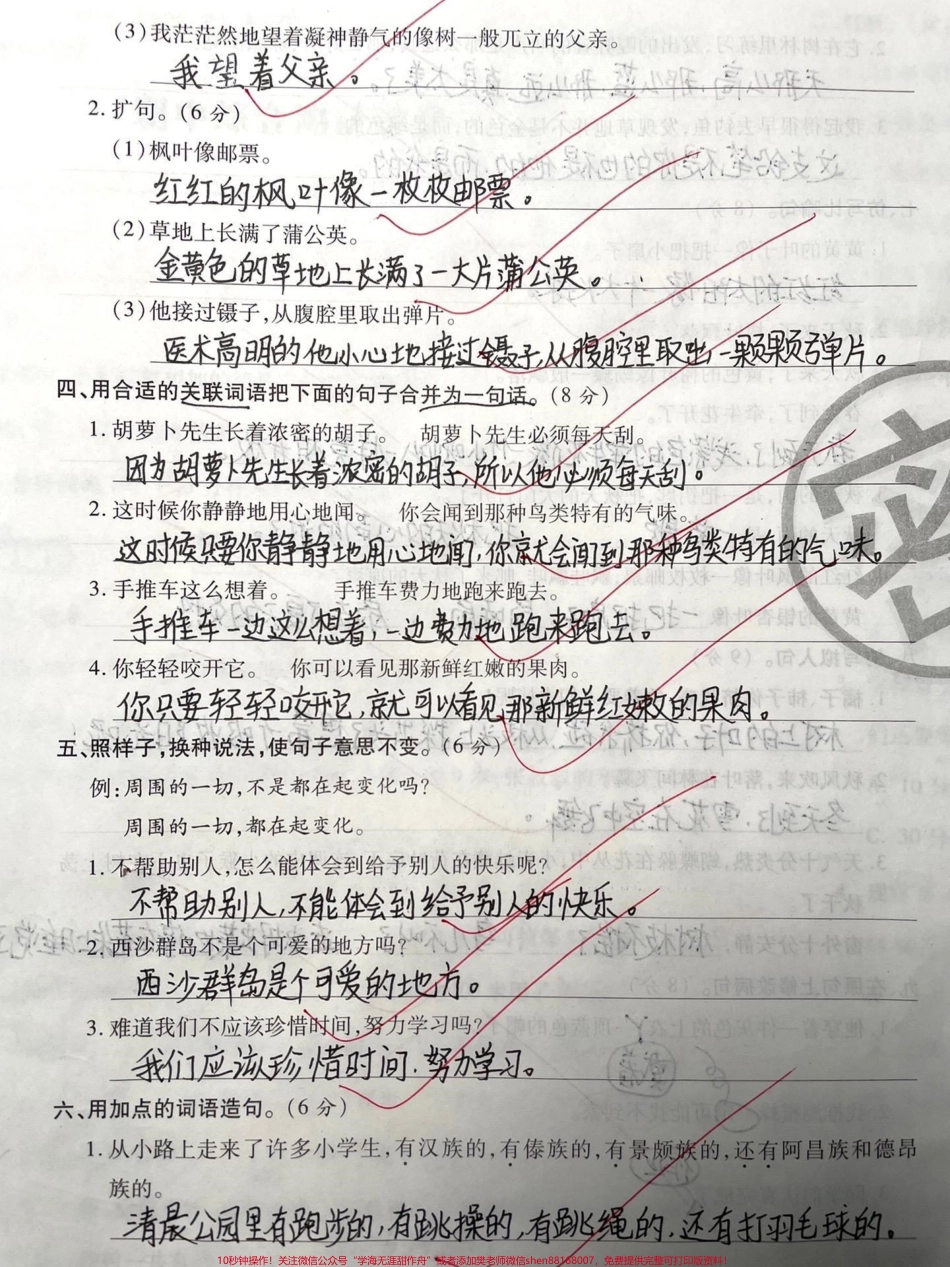 (3)我茫茫然地望着凝神静气的像树一般兀立的父亲。
我望着父亲。
2.扩句。(6分)
(1)枫叶像邮票。
红红的枫叶像一枚枚邮票。
(2)草地上长满了蒲公英。
金黄色的草地上长满了一大片蒲公英。
(3)他接过镊子,从腹腔里取出弹片。
医术高明的他小心地接过镊子,从腹腔里取出一颗颗弹片。
四、用合适的关联词语把下面的句子合并为一句话。(8分)
1.胡萝卜先生长着浓密的胡子。 胡萝卜先生必须每天刮。
因为胡萝卜先生长着浓密的胡子,所以他必须每天刮。
2.这时候你静静地用心地闻。 你会闻到那种鸟类特有的气味。
这时候只要你静静地用心地闻,你就会闻到那种鸟类特有的气味。
3.手推车这么想着。 手推车费力地跑来跑去。
手推车一边这么想着,一边费力地跑来跑去。
4.你轻轻咬开它。 你可以看见那新鲜红嫩的果肉。
你只要轻轻咬开它,就可以看见那新鲜红嫩的果肉。
五、照样子,换种说法,使句子意思不变。(6分)
例:周围的一切,不是都在起变化吗?
周围的一切,都在起变化。
1.不帮助别人,怎么能体会到给予别人的快乐呢?
不帮助别人,不能体会到给予别人的快乐。
2.西沙群岛不是个可爱的地方吗?
西沙群岛是个可爱的地方。
3.难道我们不应该珍惜时间,努力学习吗?
我们应该珍惜时间,努力学习。
六、用加点的词语造句。(6分)
1.从小路上走来了许多小学生,有汉族的,有傣族的,有景颇族的,还有阿昌族和德昂
族的。
清晨公园里有跑步的,有跳操的,有跳绳的,还有打羽毛球的。
密
10秒钟操作!关注微信公众号“学海无涯甜作舟”或者添加樊老师微信shen88168007,免费提供完整可打印版资料!